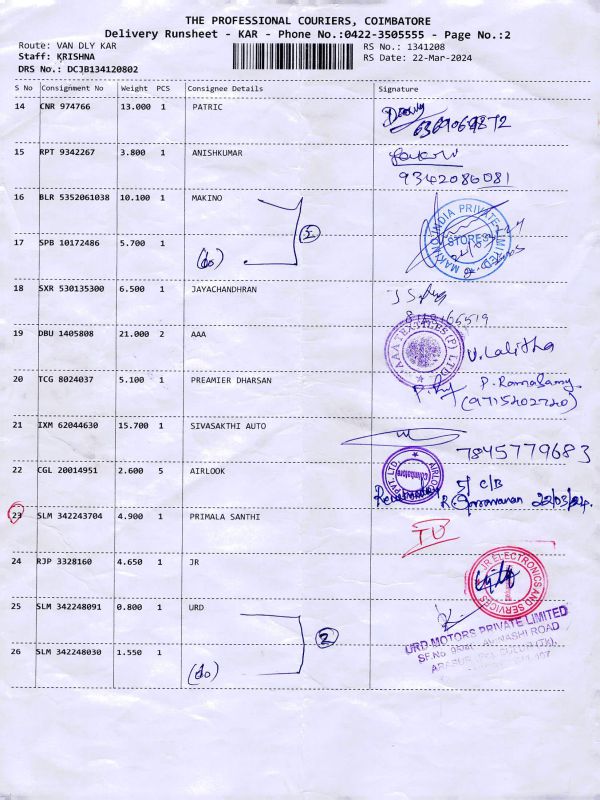 THE PROFESSIONAL COURIERS, COIMBATORE
Delivery Runsheet - KAR - Phone No.:0422-3505555 - Page No.:2
Route: VAN DLY KAR RS No.: 1341208
Staff: KRISHNA RS Date: 22-Mar-2024
DRS No.: DCJB134120802
S No Consignment No Weight PCS Consignee Details Signature
14 CNR 974766 13.000 1 PATRIC
15 RPT 9342267 3.800 1 ANISHKUMAR
9342086081
16 BLR 5352061038 10.100 1 MAKINO
2
MAKINO INDIA PRIVATE LIMITED
STORES
17 SPB 10172486 5.700 1
(do)
18 SXR 530135300 6.500 1 JAYACHANDHRAN
19 DBU 1405808 21.000 2 AAA
AAA TEXTILES (P) LTD.
V. Lalitha
20 TCG 8024037 5.100 1 PREAMIER DHARSAN
P. Ramasamy
(9715202720)
21 IXM 62044630 15.700 1 SIVASAKTHI AUTO
7845779683
22 CGL 20014951 2.600 5 AIRLOOK
Coimbatore
5/ C/B
22/03/24.
23 SLM 342243704 4.900 1 PRIMALA SANTHI
24 RJP 3328160 4.650 1 JR
JR ELECTRONICS AND SERVICES
25 SLM 342248091 0.800 1 URD
2
URD MOTORS PRIVATE LIMITED
AVINASHI ROAD
26 SLM 342248030 1.550 1
(do)